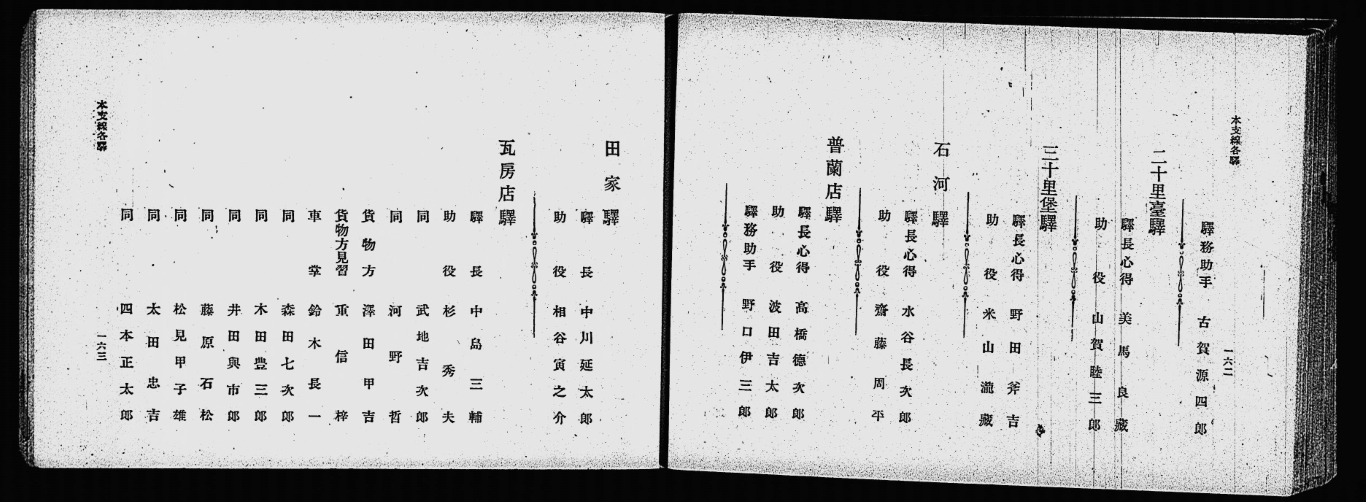 本支線各驛
一六二
驛務助手 古賀源四郎
二十里臺驛
驛長心得 美馬良藏
助役 山賀睦三郎
三十里堡驛
驛長心得 野田斧吉
助役 米山瀧藏
石河驛
驛長心得 水谷長次郎
助役 齋藤周平
普蘭店驛
驛長心得 高橋德次郎
助役 波田吉太郎
驛務助手 野口伊三郎
田家驛
驛長 中川延太郎
助役 相谷寅之介
瓦房店驛
驛長 中島三輔
助役 杉秀夫
同 武地吉次郎
同 河野哲
貨物方 澤田甲吉
貨物方見習 重信梓
車掌 鈴木長一
同 森田七次郎
同 木田豊三郎
同 井田與市郎
同 藤原石松
同 松見甲子雄
同 太田忠吉
同 四本正太郎
本支線各驛
一六三